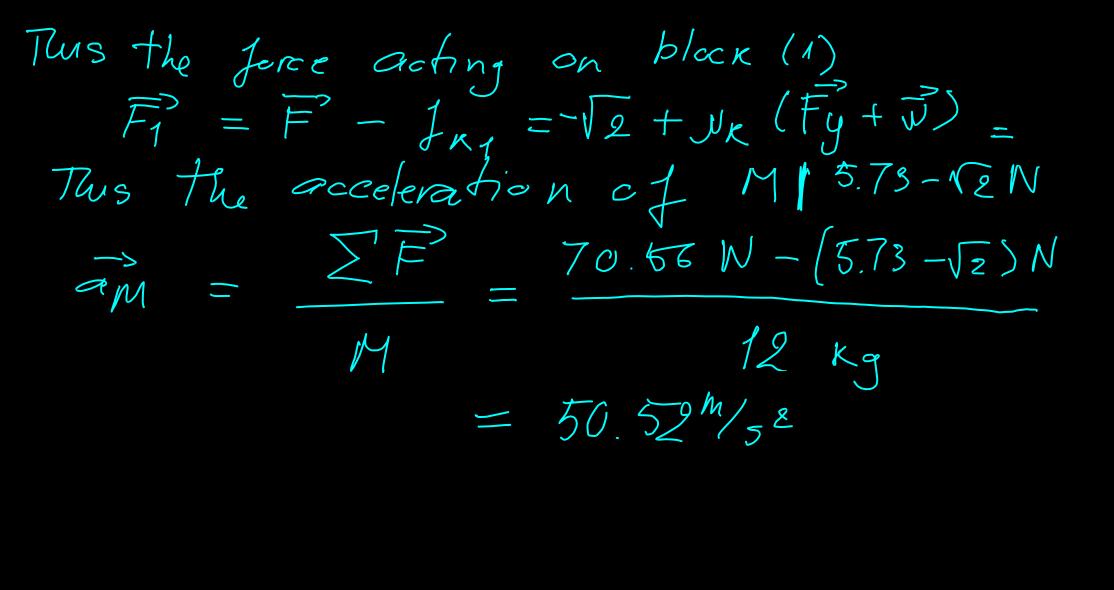 Tus the force acting on block (1)
F₁⃗ = F⃗ - f_{k1} = -√2 + μ_k (F_y⃗ + w⃗) =
Tus the acceleration of M | 5.73 - √2 N
a_M⃗ = ΣF⃗ / M = 70.56 N - (5.73 - √2) N / 12 kg
= 50.52 m/s²